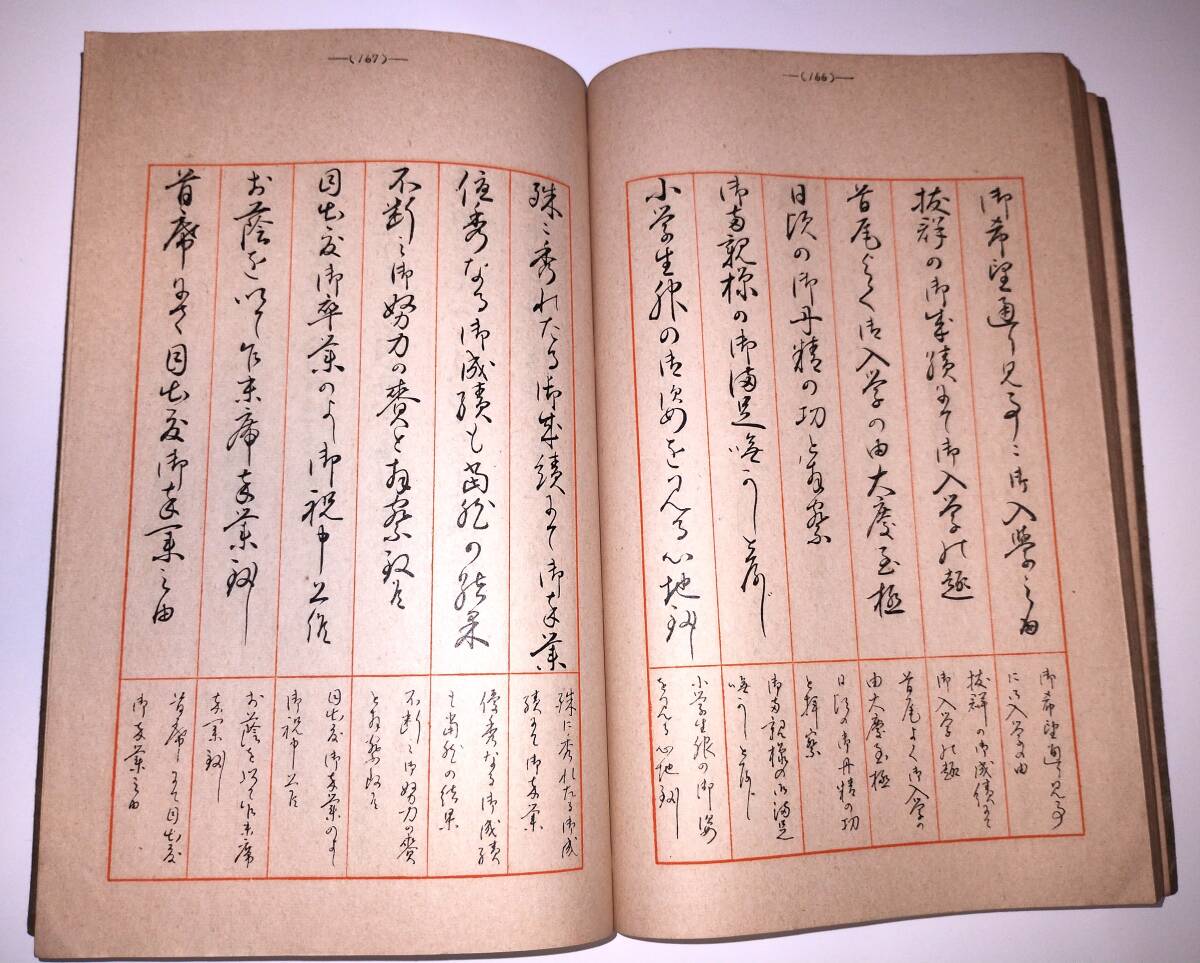 —(166)—
御希望通り見事ニ御入學之由
抜群の御成績にて御入学の趣
首尾よく御入学の由大慶至極
日頃の御丹精の功と拝察
御両親様の御満足嘸かしと存じ
小学生服の御姿をみる心地致し
御希望通り見事
に御入学の由
抜群の御成績にて
御入学の趣
首尾よく御入学の
由大慶至極
日頃の御丹精の功
と拝察
御両親様の御満足
嘸かしと存じ
小学生服の御姿
をみる心地致し
—(167)—
殊ニ秀れたる御成績にて御卒業
優秀なる御成績も当然の結果
不断之御努力の賚と拝察致候
目出度御卒業のよし御祝申上候
お蔭を以て乍末席卒業致し
首席にて目出度御卒業之由
殊に秀れたる御成
績にて御卒業
優秀なる御成績
も当然の結果
不断之御努力の賚
と拝察致候
目出度御卒業のよし
御祝申上候
お蔭を以て乍末席
卒業致し
首席にて目出度
御卒業之由